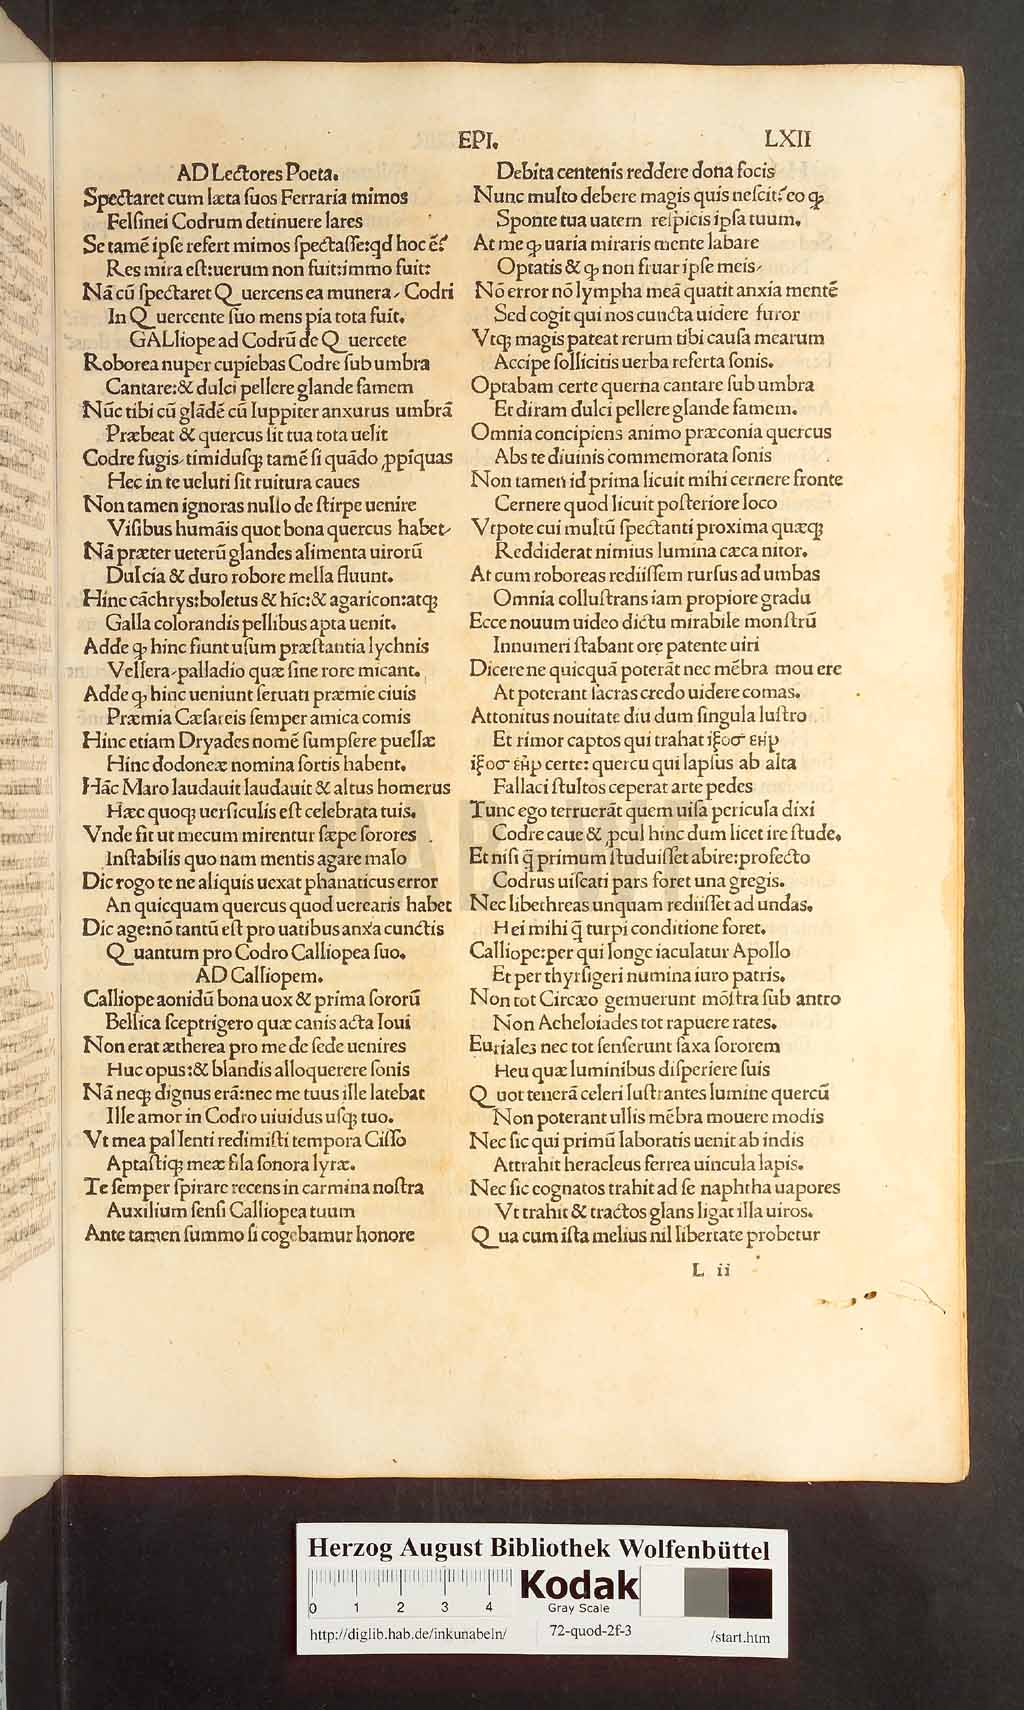 EPI.
LXII
AD Lectores Poeta.
Spectaret cum læta suos Ferraria mimos
Felsinei Codrum detinuere lares
Se tamē ipse refert mimos spectasse:qd hoc ē?
Res mira est:uerum non fuit:immo fuit:
Nā cū spectaret Quercens ea munera/ Codri
In Quercente suo mens pia tota fuit.
GALliope ad Codrū de Quercete
Roborea nuper cupiebas Codre sub umbra
Cantare:& dulci pellere glande famem
Nūc tibi cū glādē cū Iuppiter anxurus umbrā
Præbeat & quercus sit tua tota uelit
Codre fugis/timidusqꝫ tamē si quādo ꝓpīquas
Hec in te ueluti sit ruitura caues
Non tamen ignoras nullo de stirpe uenire
Visibus humāis quot bona quercus habet/
Nā præter ueterū glandes alimenta uirorū
Dulcia & duro robore mella fluunt.
Hinc cāchrys:boletus & hīc:& agaricon:atqꝫ
Galla colorandis pellibus apta uenit.
Adde ꝙ hinc fiunt usum præstantia lychnis
Vellera/palladio quæ sine rore micant.
Adde ꝙ hinc ueniunt seruati præmie ciuis
Præmia Cæsareis semper amica comis
Hinc etiam Dryades nomē sumpsere puellæ
Hinc dodoneæ nomina sortis habent.
Hāc Maro laudauit laudauit & altus homerus
Hæc quoqꝫ uersiculis est celebrata tuis.
Vnde fit ut mecum mirentur sæpe sorores
Instabilis quo nam mentis agare malo
Dic rogo te ne aliquis uexat phanaticus error
An quicquam quercus quod uerearis habet
Dic age:nō tantū est pro uatibus anxia cunctis
Quantum pro Codro Calliopea suo.
AD Calliopem.
Calliope aonidū bona uox & prima sororū
Bellica sceptrigero quæ canis acta Ioui
Non erat ætherea pro me de sede uenires
Huc opus:& blandis alloquerere sonis
Nā neqꝫ dignus erā:nec me tuus ille latebat
Ille amor in Codro uiuidus usqꝫ tuo.
Vt mea pallenti redimisti tempora Cisso
Aptastiqꝫ meæ fila sonora lyræ.
Te semper spirare recens in carmina nostra
Auxilium sensi Calliopea tuum
Ante tamen summo si cogebamur honore
Debita centenis reddere dona focis
Nunc multo debere magis quis nescit? eo ꝙ
Sponte tua uatem respicis ipsa tuum.
At me ꝙ uaria miraris mente labare
Optatis & ꝙ non fruar ipse meis/
Nō error nō lympha meā quatit anxia mentē
Sed cogit qui nos cuncta uidere furor
Vtqꝫ magis pateat rerum tibi causa mearum
Accipe sollicitis uerba referta sonis.
Optabam certe querna cantare sub umbra
Et diram dulci pellere glande famem.
Omnia concipiens animo præconia quercus
Abs te diuinis commemorata sonis
Non tamen id prima licuit mihi cernere fronte
Cernere quod licuit posteriore loco
Vtpote cui multū spectanti proxima quæqꝫ
Reddiderat nimius lumina cæca nitor.
At cum roboreas rediissem rursus ad umbas
Omnia collustrans iam propiore gradu
Ecce nouum uideo dictu mirabile monstrū
Innumeri stabant ore patente uiri
Dicere ne quicquā poterāt nec mēbra mouere
At poterant sacras credo uidere comas.
Attonitus nouitate diu dum singula lustro
Et rimor captos qui trahat ιξοσ ενηρ
ιξοσ ενηρ certe: quercu qui lapsus ab alta
Fallaci stultos ceperat arte pedes
Tunc ego terruerāt quem uisa pericula dixi
Codre caue & ꝓcul hinc dum licet ire stude.
Et nisi q̄ primum studuisset abire:profecto
Codrus uiscati pars foret una gregis.
Nec libethreas unquam rediisset ad undas.
Hei mihi q̄ turpi conditione foret.
Calliope:per qui longe iaculatur Apollo
Et per thyrsigeri numina iuro patris.
Non tot Circæo gemuerunt mōstra sub antro
Non Acheloiades tot rapuere rates.
Euriales nec tot senserunt saxa sororem
Heu quæ luminibus disperiere suis
Quot tenerā celeri lustrantes lumine quercū
Non poterant ullis mēbra mouere modis
Nec sic qui primū laboratis uenit ab indis
Attrahit heracleus ferrea uincula lapis.
Nec sic cognatos trahit ad se naphtha uapores
Vt trahit & tractos glans ligat illa uiros.
Qua cum ista melius nil libertate probetur
L ii
Herzog August Bibliothek Wolfenbüttel
0 1 2 3 4
Kodak
Gray Scale
http://diglib.hab.de/inkunabeln/
72-quod-2f-3
/start.htm